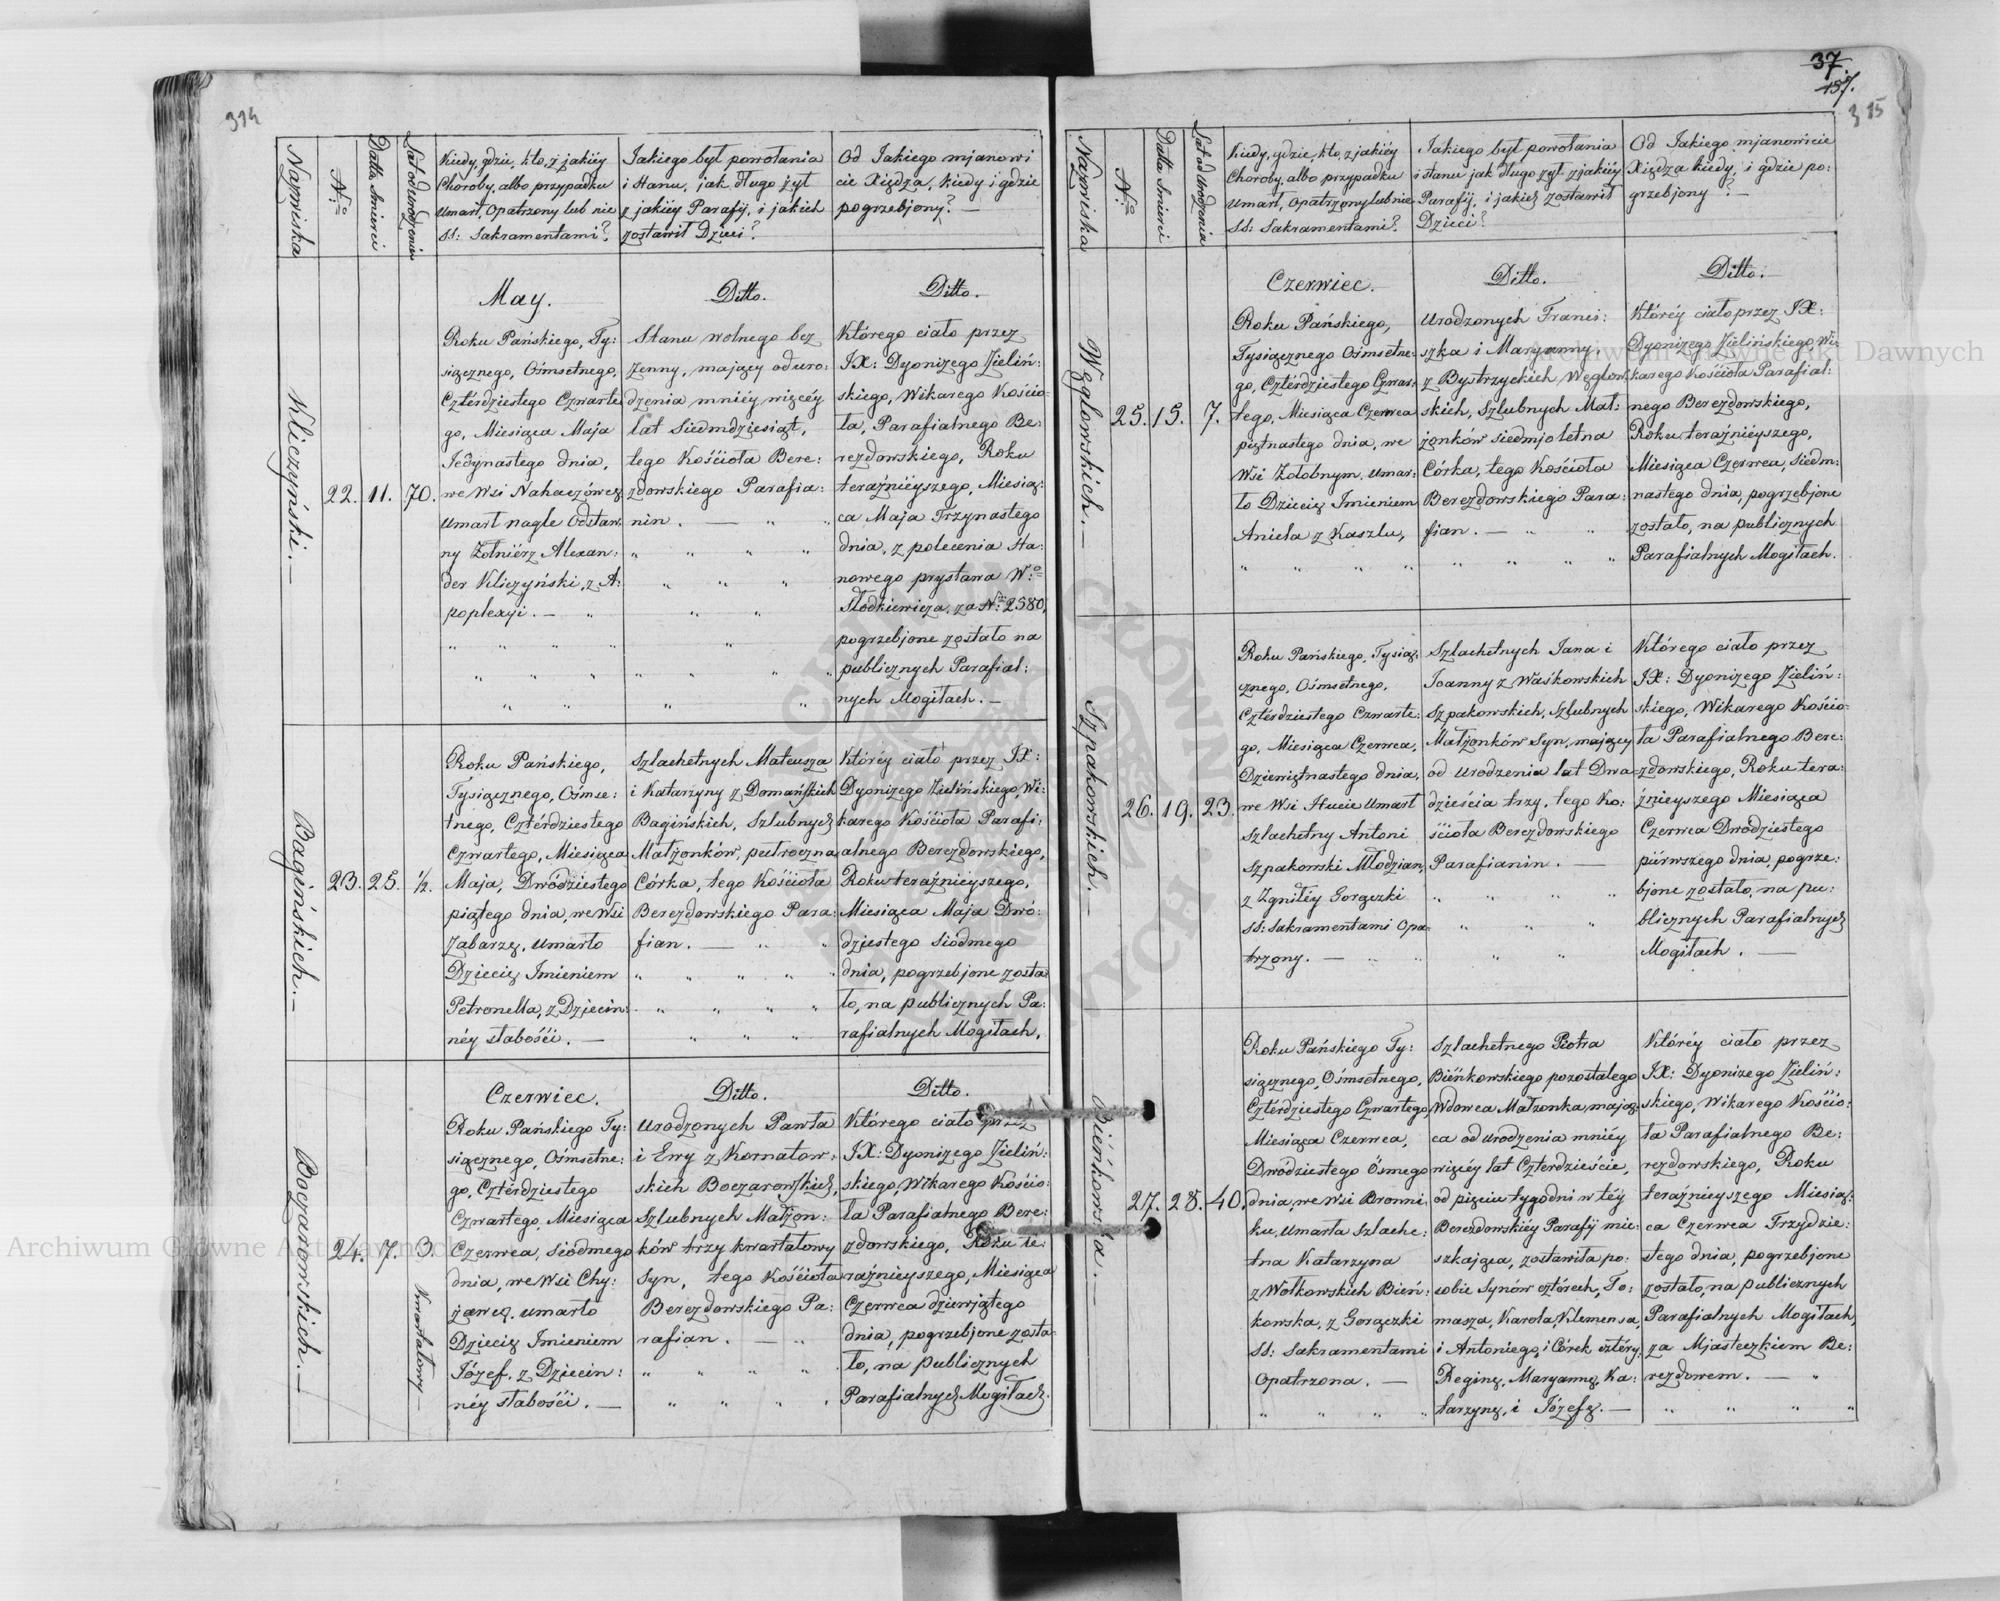 394
Nazwiska
N.o
Datta śmierci
Lat od urodzenia
Kiedy, gdzie, kto, z jakiéy
Choroby, albo przypadku
Umarł, Opatrzony lub nie
SS: Sakramentami?
Jakiego był powołania
i Stanu, jak długo żył
z jakiéy Parafij, i jakich
zostawił Dzieci?
Od Jakiego mjanowi
cie Xiędza, kiedy i gdzie
pogrzebjony? —
Kliczyński. —
22.
11.
70.
May.
Roku Pańskiego, Ty:
siącznego, Ośmsetnego,
Cztérdziestego Czwarte
go, Miesiąca Maja
Jedynastego dnia,
we Wsi Nahaczówcę
Umarł nagle Odstaw
ny Żołniérz Alexan:
der Kliczyński, z A:
poplexyi. —
Ditto.
Stanu wolnego bez
żenny, mający od uro:
dzenia mniéy więcéy
lat Siedmdziesiąt,
tego Kościoła Bere:
zdowskiego Parafia:
nin. —
Ditto.
Którego ciało przez
JX: Dyonizego Zieliń:
skiego, Wikarego Kościo
ła, Parafialnego Be:
rezdowskiego, Roku
teraźniéyszego, Miesią:
ca Maja Trzynastego
dnia, z polecenia Sta:
nowego prystawa W:o
Słodkiewicza, za N: 2580,
pogrzebjone zostało na
publicznych Parafial:
nych Mogiłach. —
Bagińskich. —
23.
25.
½.
Roku Pańskiego,
Tysiącznego, Ośmse:
tnego, Cztérdziestego
Czwartego, Miesiąca
Maja, Dwódziestego
piątego dnia, we Wsi
Zabarzę, umarło
Dziecię Imieniem
Petronella, z Dziecin:
néy słabości. —
Szlachetnych Mateusza
i Katarzyny z Domańskich
Bagińskich, Szlubnych
Małżonków, pułroczna
Córka, tego Kościoła
Berezdowskiego Para:
fian. —
Któréy ciało przez JX:
Dyonizego Zielińskiego, Wi:
karego Kościoła Parafi:
alnego Berezdowskiego,
Roku teraźniéyszego,
Miesiąca Maja Dwó:
dziestego Siódmego
dnia, pogrzebjone zosta
ło, na publicznych Pa:
rafialnych Mogiłach.
Boczarowskich. —
24.
7.
3.
Kwartałowy —
Czerwiec.
Roku Pańskiego Ty:
siącznego, Ośmsetne:
go, Cztérdziestego
Czwartego, Miesiąca
Czerwca, Siódmego
dnia, we Wsi Chy:
żawcę, umarło
Dziecię Imieniem
Józef, z Dziecin:
néy słabości. —
Ditto.
Urodzonych Pawła
i Ewy z Kornatow:
skich Boczarowskich,
Szlubnych Małżon:
ków trzy kwartałowy
Syn, tego Kościoła
Berezdowskiego Pa:
rafian. —
Ditto.
Którego ciało przez
JX: Dyonizego Zieliń:
skiego, Wikarego Kościo:
ła Parafialnego Bere:
zdowskiego, Roku te:
raźnieyszego, Miesiąca
Czerwca dziewjątego
dnia, pogrzebjone zosta:
ło, na publicznych
Parafialnych Mogiłach.
37
157.
315
Nazwiska
N.o
Datta śmierci
Lat od Urodzenia
Kiedy, gdzie, kto, z jakiéy
Choroby, albo przypadku
Umarł, Opatrzony lub nie
SS: Sakramentami?
Jakiego był powołania
i stanu jak długo żył z jakiéy
Parafij, i jakich zostawił
Dzieci?
Od Jakiego mjanowicie
Xiędza kiedy, i gdzie po:
grzebjony? —
Węglowskich. —
25.
15.
7.
Czerwiec.
Roku Pańskiego,
Tysiącznego Ośmsetne:
go, Cztérdziestego Czwar:
tego, Miesiąca Czerwca
piętnastego dnia, we
Wsi Żołobnym, umar:
ło Dziecię Imieniem
Aniela z Kaszlu,
Ditto.
Urodzonych Franci:
szka i Maryanny
z Bystrzyckich Węglow:
skich, Szlubnych Mał:
żonków siedmjoletna
Córka, tego Kościoła
Berezdowskiego Para:
fian. —
Ditto.
Któréy ciało przez JX:
Dyonizego Zielińskiego, Wi:
karego Kościoła Parafial:
nego Berezdowskiego,
Roku teraźniéyszego,
Miesiąca Czerwca, Siedm:
nastego dnia, pogrzebjone
zostało, na publicznych
Parafialnych Mogiłach.
Szpakowskich. —
26.
19.
23.
Roku Pańskiego, Tysią:
cznego, Ośmsetnego,
Cztérdziestego Czwarte:
go, Miesiąca Czerwca,
Dziewiętnastego dnia,
we Wsi Hucie Umarł
Szlachetny Antoni
Szpakowski Młodzian,
z Zgniłéy Gorączki
SS: Sakramentami Opa:
trzony. —
Szlachetnych Jana i
Joanny z Waśkowskich
Szpakowskich, Szlubnych
Małżonków Syn, mający
od Urodzenia lat Dwa:
dzieścia trzy, tego Ko:
ścioła Berezdowskiego
Parafianin. —
Którego ciało przez
JX: Dyonizego Zieliń:
skiego, Wikarego Kościo:
ła Parafialnego Bere:
zdowskiego, Roku tera:
źnieyszego Miesiąca
Czerwca Dwódziestego
piérwszego dnia, pogrze:
bjone zostało, na pu:
blicznych Parafialnych
Mogiłach. —
Bieńkowska. —
27.
28.
40.
Roku Pańskiego Ty:
siącznego, Ośmsetnego,
Cztérdziestego Czwartego,
Miesiąca Czerwca,
Dwódziestego Ósmego
dnia, we Wsi Bronni:
ku, Umarła Szlache:
tna Katarzyna
z Wołkowskich Bień:
kowska, z Gorączki
SS: Sakramentami
Opatrzona. —
Szlachetnego Piotra
Bieńkowskiego pozostałego
Wdowca Małżonka, mają:
ca od urodzenia mniéy
więcéy lat Cztérdzieście,
od pięciu tygodni w téy
Berezdowskiéy Parafij mie:
szkająca, zostawiła po:
sobie Synów cztérech, To:
masza, Karola, Klemensa,
i Antoniego, i Córek cztéry,
Reginę, Maryannę, Ka:
tarzynę, i Józefę. —
Któréy ciało przez
JX: Dyonizego Zieliń:
skiego, Wikarego Kościo:
ła Parafialnego Be:
rezdowskiego, Roku
teraźnieyszego Miesią:
ca Czerwca Trzydzie:
stego dnia, pogrzebjone
zostało, na publicznych
Parafialnych Mogiłach,
za Mjasteczkiem Be:
rezdowem. —
Archiwum Główne Akt Dawnych
Archiwum Główne Akt Dawnych